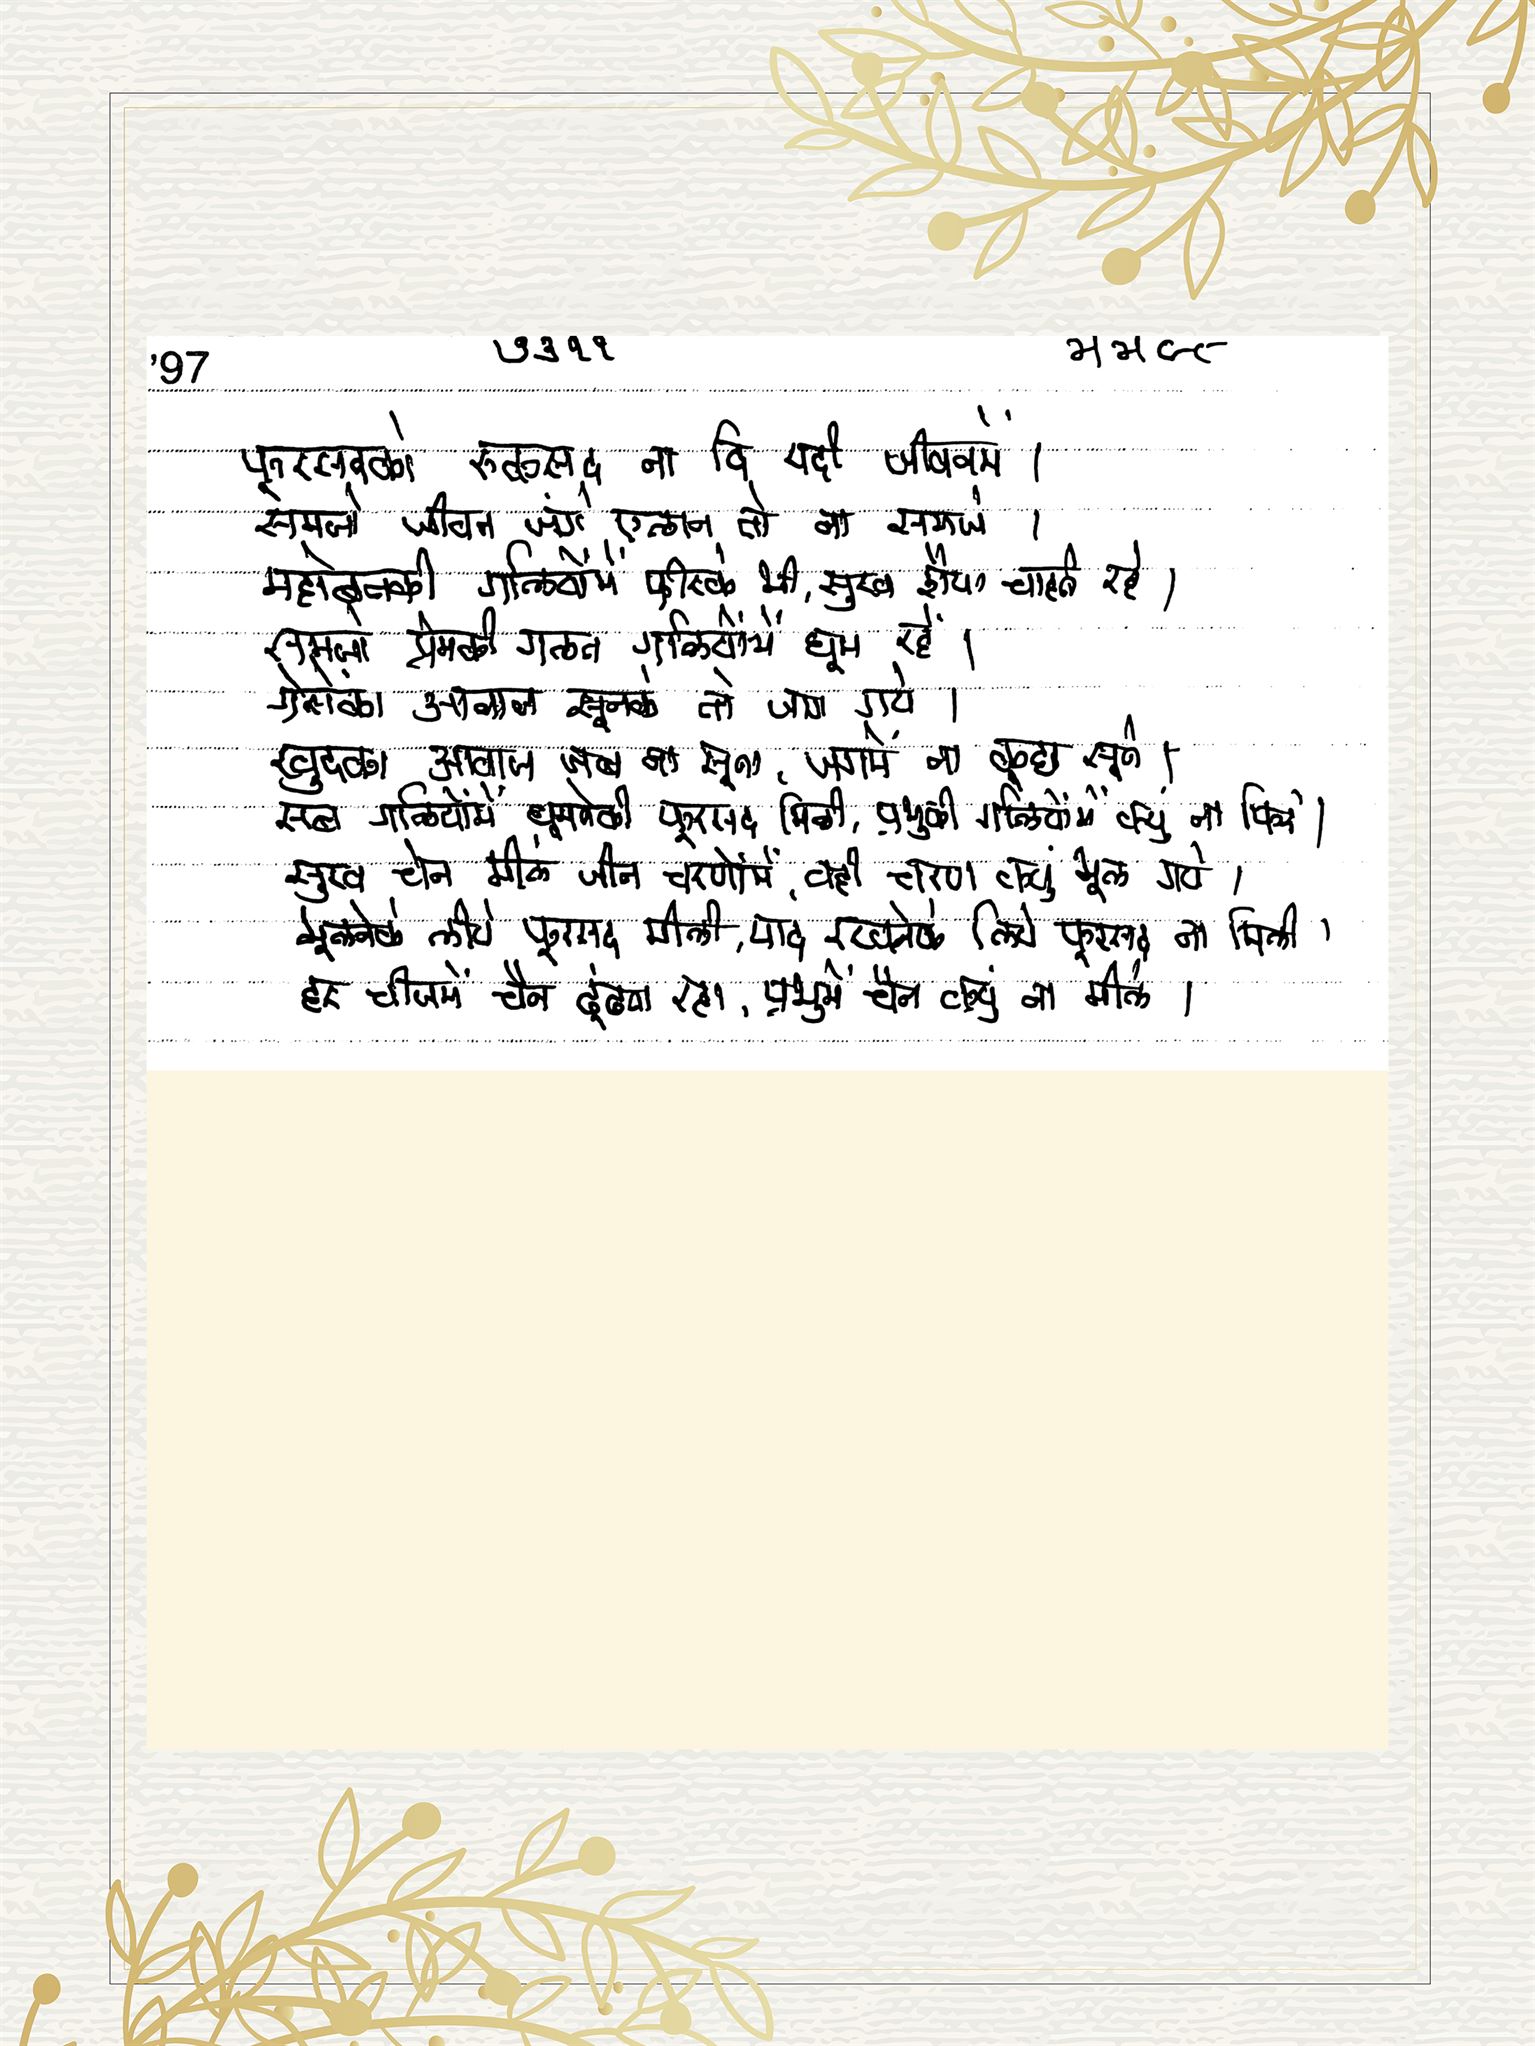 '97 ७३११
फुरसदको रुकसद ना दि यदी जीवनमें ।
समजो जीवन जंगे एलान तो ना समजे ।
महोबतकी गलियोंमें फीरके भी, सुख शैया चाहते रहे ।
समजो प्रेमकी गलत गलियोंमें घूम रहें ।
गैरोंका आवाज सूनके तो जाग गये ।
खुदका आवाज जब ना सूना, जगमें ना कूछ सूने ।
सब गलियोंमें घूमनेकी फूरसद मिली, प्रभुकी गलियोंमें क्युं ना फिरे ।
सुख चेन मीले जीन चरणोंमें, वही चरण क्युं भूल गये ।
भूलनेके लीये फूरसद मीली, याद रखनेके लिये फूरसद ना मिली ।
हर चीजमें चैन ढूंढता रहा, प्रभुमें चैन क्युं ना मीले ।